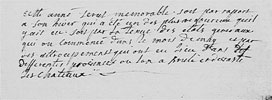 cette année serat memorable, soit par raport
a son hiver qui a été un des plus rigoureux qu'il
y ait eu, soit par la tenue des etats generaux
qui ont commencé dans le mois de may et par
des attroupement qui ont eu lieu dans
Differentes provinces ou lon a brulé
des chateaux